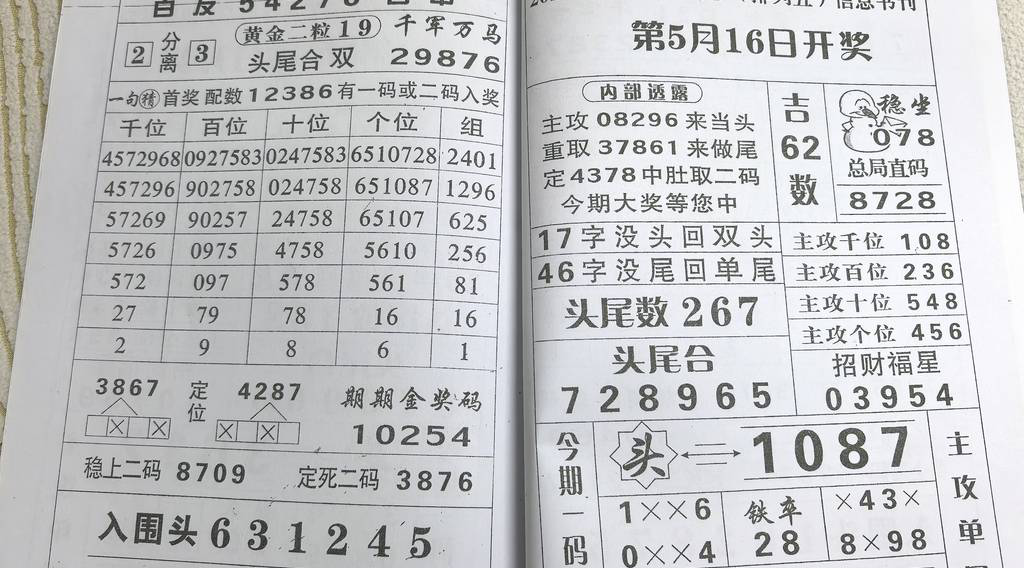 黄金二粒19 千军万马
2 分离 3 头尾合双 29876
一句精首奖配数12386有一码或二码入奖
千位 百位 十位 个位 组
4572968 0927583 0247583 6510728 2401
457296 902758 024758 651087 1296
57269 90257 24758 65107 625
5726 0975 4758 5610 256
572 097 578 561 81
27 79 78 16 16
2 9 8 6 1
3867 定位 4287 期期金奖码
× × × × 10254
稳上二码 8709 定死二码 3876
入围头631245
第5月16日开奖
内部透露
主攻08296来当头
重取37861来做尾
定4378中肚取二码
今期大奖等您中
吉62数
稳坐
078
总局直码
8728
17字没头回双头
46字没尾回单尾
头尾数267
主攻千位 108
主攻百位 236
主攻十位 548
主攻个位 456
头尾合
728965
招财福星
03954
今期一码
头 1087
1××6 铁率 ×43×
0××4 28 8×98
主攻单